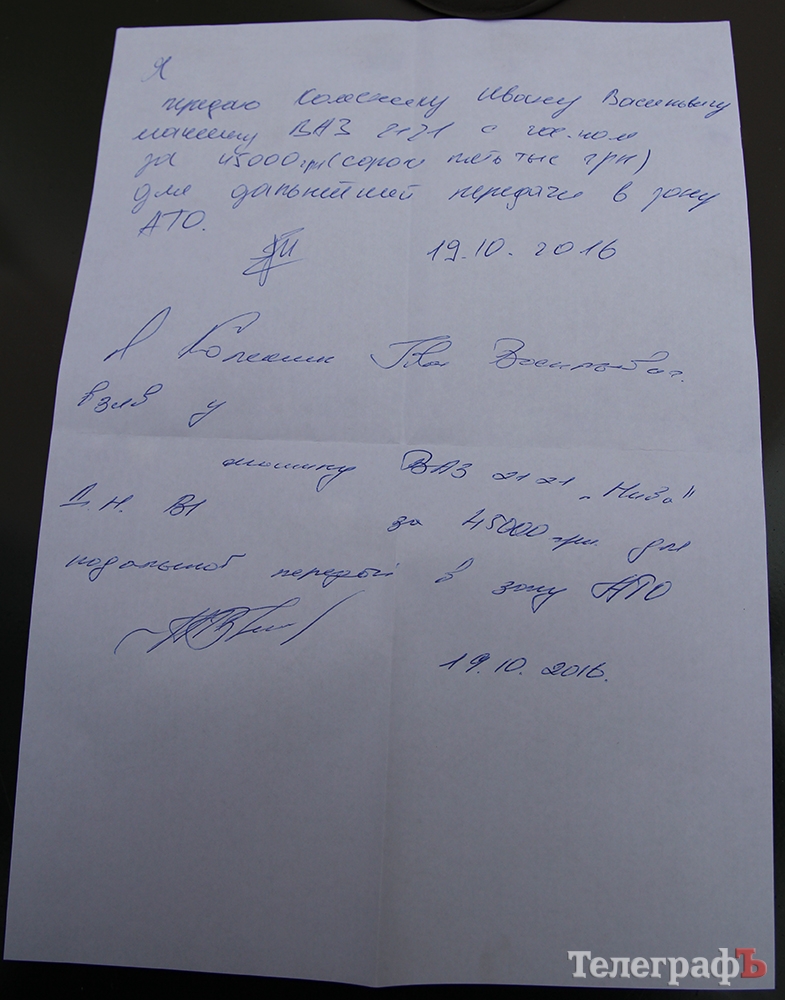 Я
передаю Колеснику Ивану Васильевичу
машину ВАЗ 2121 с гос. ном
за 45000 грн (сорок пять тыс грн)
для дальнейшей передачи в зону
АТО.
19.10.2016
Я Колесник Іван Васильович.
взяв у
машину ВАЗ 2121 „Нива"
Д.Н. ВІ за 45000 грн. для
подальшої передачі в зону АТО
19.10.2016.
ТелеграфЪ